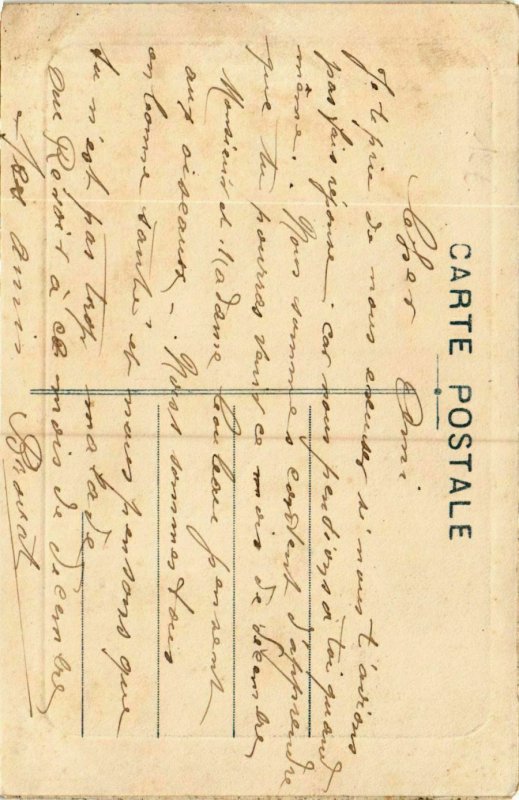 CARTE POSTALE
Cher Ami
Je te prie de nous excuser si nous t'avions
pas fais réponse. car nous pensions a toi quand
même. Nous sommes content d'apprendre
que tu pourras venir ce mois de Décembre,
Monsieur et Madame pensent
aux oiseaux. Nous sommes tous
en bonne santé et nous pensons que
tu n'est pas trop malade.
Au Revoir à ce mois de décembre,
Tes amis